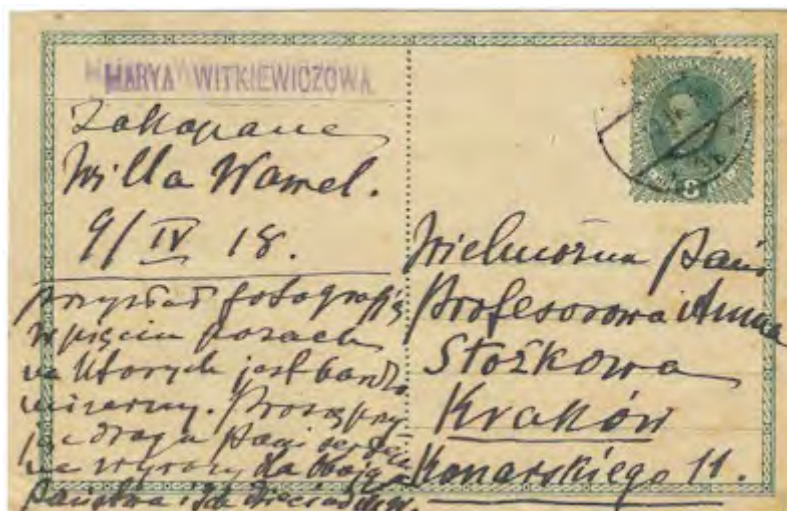 MARYA WITKIEWICZOWA
Zakopane
Willa Wawel.
9/IV 18.
przysłał fotografię
w pięciu pozach
na których jest bardzo
mizerny. Proszę przy
jąć droga Pani serdecz
ne wyrazy dla obojga
Państwa i Ich
Wielmożna Pani
Profesorowa Anna
Stożkowa
Kraków
Konarskiego 11.
8